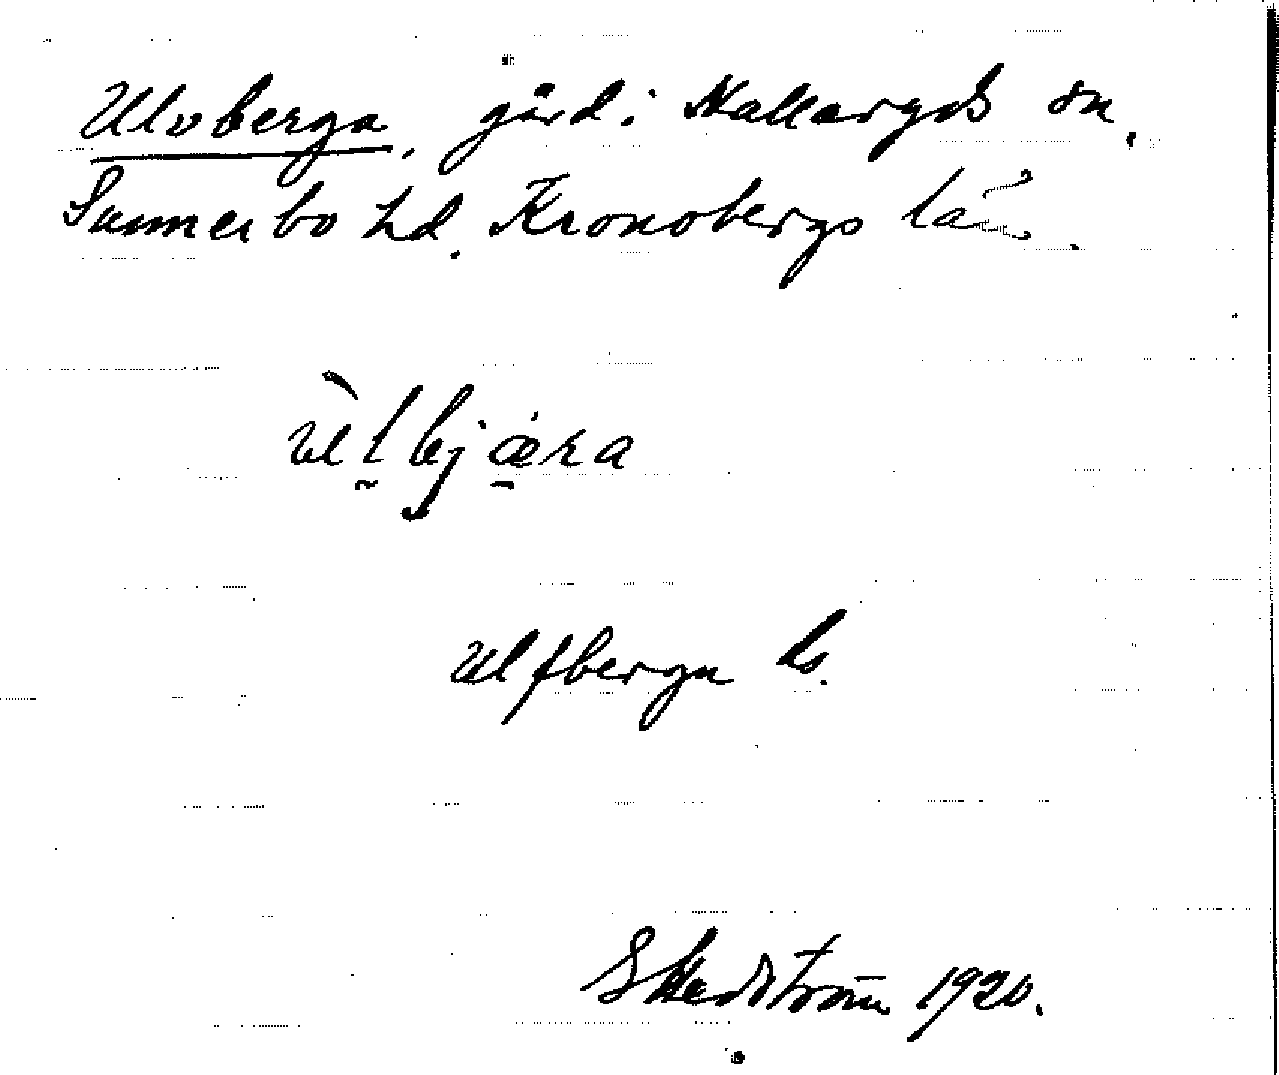 Ulvberga, gård i Hallaryds sn,
Sunnerbo hd. Kronobergs län.
ùlbjæra
Ulfberga ls.
S Hedström 1920.